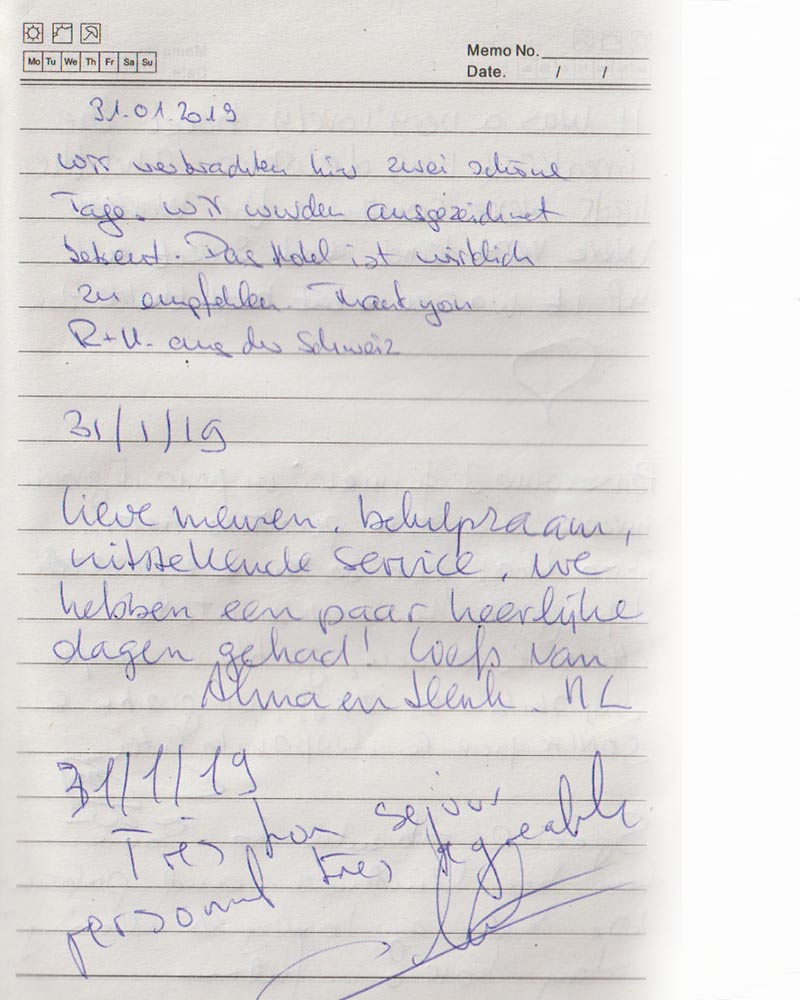 Mo Tu We Th Fr Sa Su
Memo No.
Date. / /
31.01.2019
Wir verbrachten hier zwei schöne
Tage. Wir wurden ausgezeichnet
betreut. Das Hotel ist wirklich
zu empfehlen. Thank you
R+U. aus der Schweiz
31/1/19
Lieve mensen, behulpzaam,
uitstekende service, we
hebben een paar heerlijke
dagen gehad! Liefs van
Alma en Henk. NL
31/1/19
Très bon séjour
personnel très agreable